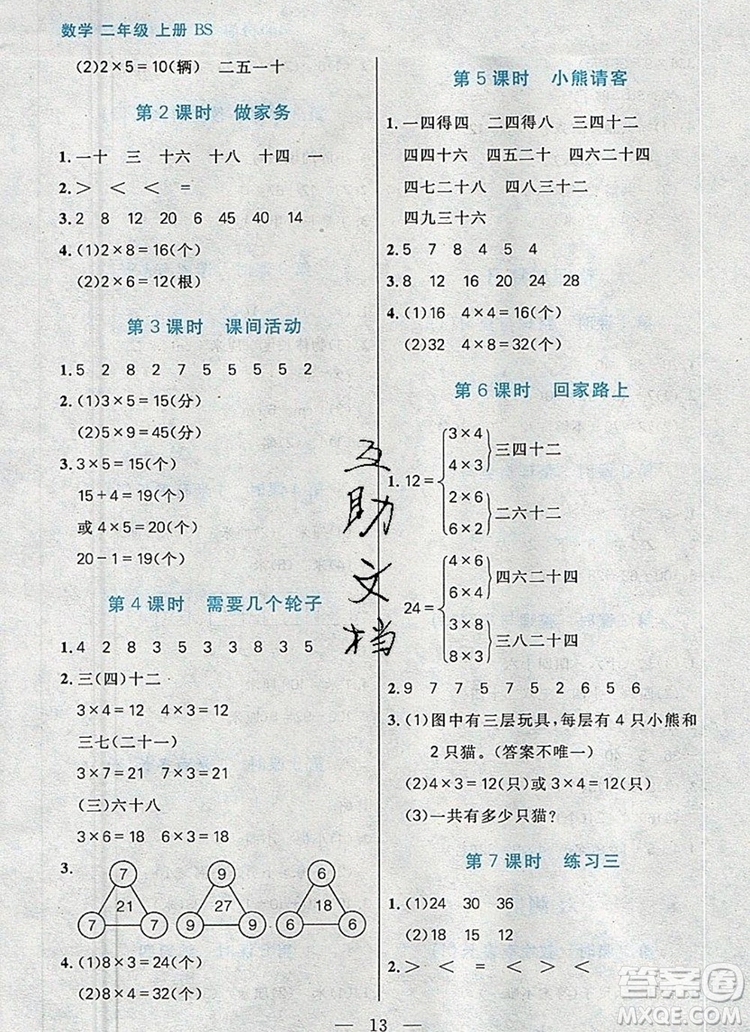 数学 二年级 上册 BS
(2)2×5=10(辆) 二五一十
第2课时 做家务
1.一十 三 十六 十八 十四 一
2.> < < = >
3.2 8 12 20 6 45 40 14
4.(1)2×8=16(个)
(2)2×6=12(根)
第3课时 课间活动
1.5 2 8 2 7 5 5 5 5 2
2.(1)3×5=15(分)
(2)5×9=45(分)
3.3×5=15(个)
15+4=19(个)
或 4×5=20(个)
20-1=19(个)
第4课时 需要几个轮子
1.4 2 8 3 5 3 3 8 3 5
2.三(四)十二
3×4=12 4×3=12
三七(二十一)
3×7=21 7×3=21
(三)六十八
3×6=18 6×3=18
3.
7 9 6
21 27 18
7 7 9 9 6 6
4.(1)8×3=24(个)
(2)4×8=32(个)
第5课时 小熊请客
1.一四得四 二四得八 三四十二
四四十六 四五二十 四六二十四
四七二十八 四八三十二
四九三十六
2.5 7 8 4 5 4
3.8 12 16 20 24 28
4.(1)16 4×4=16(个)
(2)32 4×8=32(个)
第6课时 回家路上
3×4
三四十二
4×3
1.12=
2×6
二六十二
6×2
4×6
四六二十四
6×4
24=
3×8
三八二十四
8×3
2.9 7 7 5 7 5 2 6 5 6
3.(1)图中有三层玩具,每层有 4 只小熊和
2 只猫。(答案不唯一)
(2)4×3=12(只)或 3×4=12(只)
(3)一共有多少只猫?
第7课时 练习三
1.(1)24 30 36
(2)18 15 12
2.> < = < > <
13
互助文档
答案圈
MXQE.COM